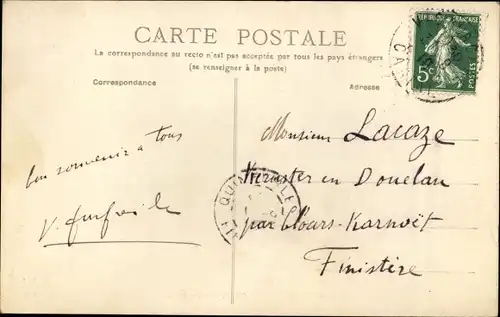 CARTE POSTALE
La correspondance au recto n'est pas acceptée par tous les pays étrangers
(se renseigner à la poste)
Correspondance
Adresse
REPUBLIQUE FRANÇAISE
5c
POSTES
bon souvenir à tous
Monsieur Lacaze
en Douelan
par Cloars-Karnoët
Finistère